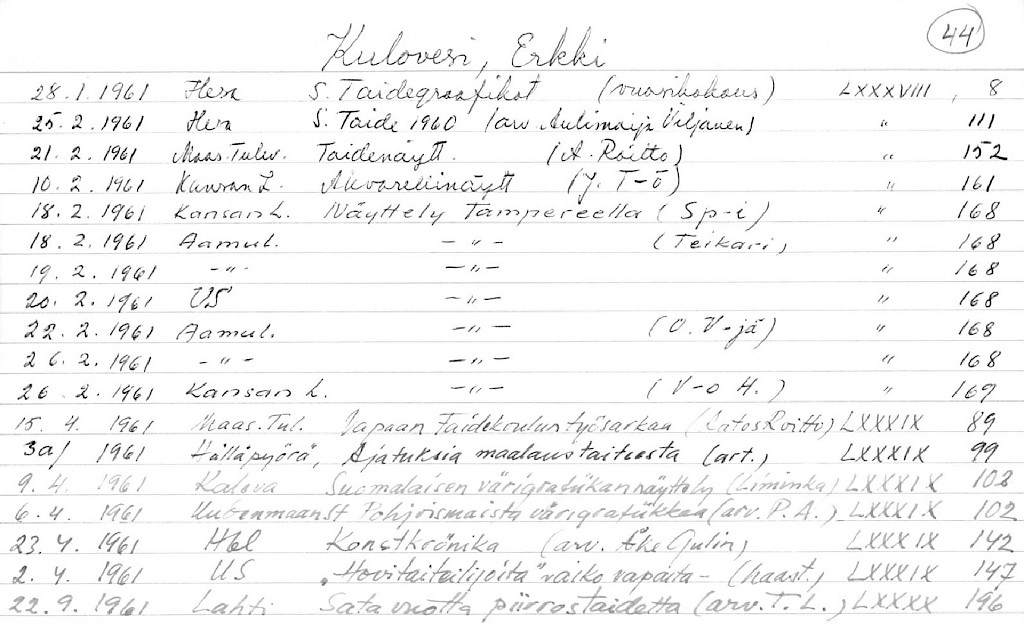 44
Kulovesi, Erkki
28.1.1961 Hesa S. Taidegraafikot (vuosikokous) LXXXVIII, 8
25.2.1961 Hesa S. Taide 1960 (arv. Aulimaija Viljanen) " 111
21.2.1961 Maas.Tulev. Taidenäytt. (A. Roitto) " 152
10.2.1961 Kansan L. Akvarellinäytt (Y. T-ö) " 161
18.2.1961 Kansan L. Näyttely Tampereella (Sp-i) " 168
18.2.1961 Aamul. -"- (Teikari) " 168
19.2.1961 -"- -"- " 168
20.2.1961 US -"- " 168
22.2.1961 Aamul. -"- (O. V-jä) " 168
26.2.1961 -"- -"- " 168
26.2.1961 Kansan L. -"- (V-o H.) " 169
15.4.1961 Maas.Tul. Vapaan taidekoulun työsarkaa (Aatos Roitto) LXXXIX 89
3a/1961 Hälläpyörä, Ajatuksia maalaustaiteesta (art.) LXXXIX 99
9.4.1961 Kaleva Suomalaisen värigrafiikan näyttely (Liminka) LXXXIX 102
6.4.1961 Uudenmaan S Pohjoismaista värigrafiikkaa (arv. P.A.) LXXXIX 102
23.4.1961 Hbl Konstkrönika (arv. Åke Gulin) LXXXIX 142
2.4.1961 US "Hovitaiteilijoita" vaiko vapaita- (haast.) LXXXIX 147
22.9.1961 Lahti Sata vuotta piirrostaidetta (arv. T.L.) LXXXX 196